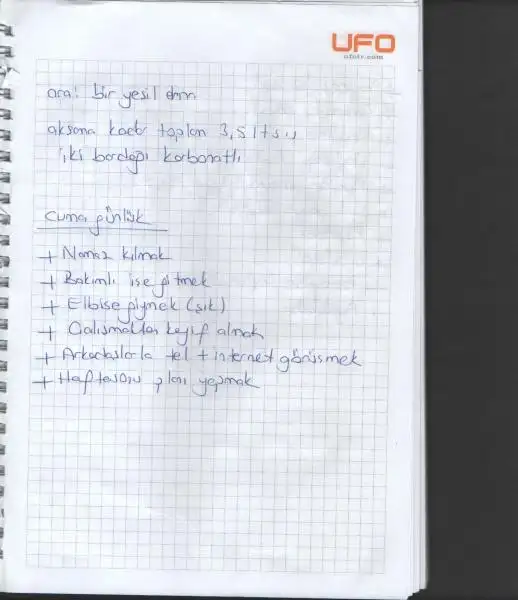 UFO
ara: bir yesil elma
aksama kadar toplan 3,5 lt su
iki bardagı karbonatlı
Cuma günlük
+ Namaz kılmak
+ Bakımlı ise gitmek
+ Elbise giymek (sık)
+ Calısmaktan keyif almak
+ Arkadaslarla tel + internet görüsmek
+ Haftasonu planı yapmak